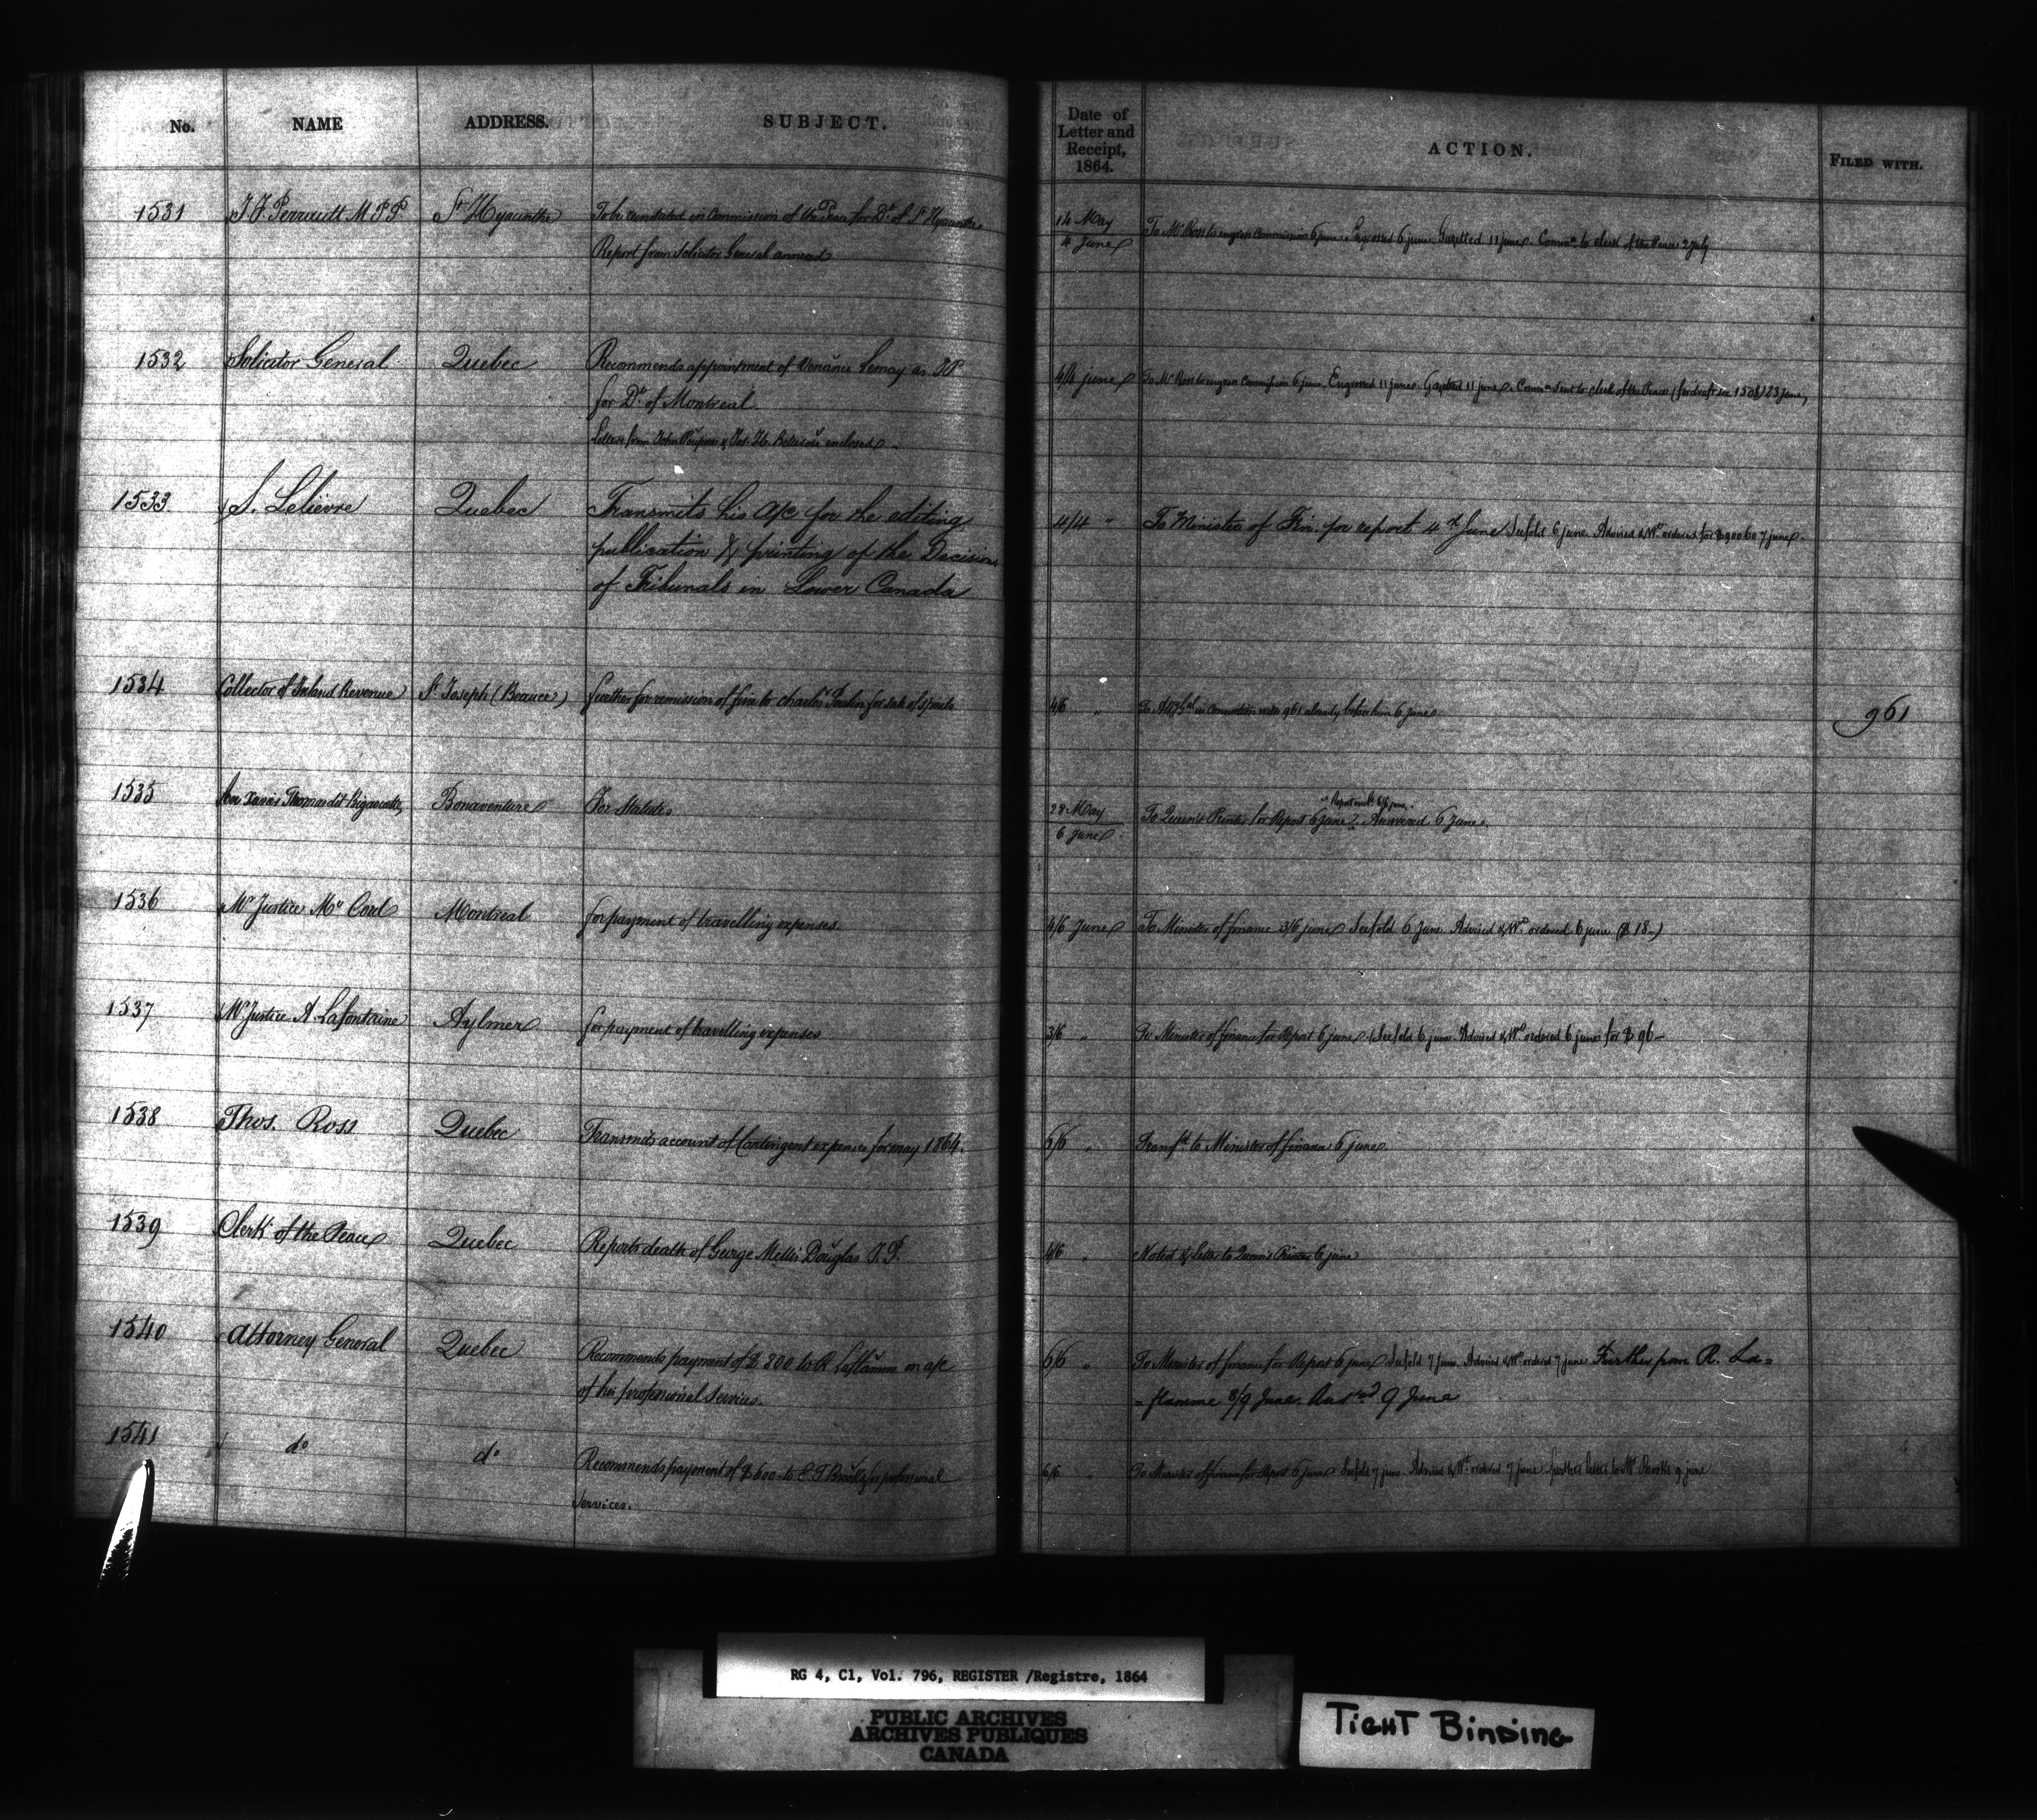 No. NAME ADDRESS. SUBJECT. Date of Letter and Receipt, 1864. ACTION. FILED WITH.
1531 St Hyacinthe To be reinstated in Commission of the Peace for Dt. of St Hyacinthe
Report from Solicitor General annexed
14 May
4 June To Mr Ross to engross Commission 6 june Engrossed 6 june Gazetted 11 june Commn to clerk of the Peace 2 July
1532 Solicitor General Quebec Recommends appointment of Venance Lemay as JP
for Dt. of Montreal.
Letters from John & Jos. H. Bellerose enclosed
4/4 june To Mr Ross to engross Commission 6 june Engrossed 11 june Gazetted 11 june Commn sent to clerk of the Peace (for draft see 1508) 23 june
1533 S. Lelievre Quebec Transmits his a/c for the editing
publication & printing of the Decisions
of Tribunals in Lower Canada
4/4 " To Minister of Fin. for report 4th June See fold 6 june Advised & Wt ordered for $900.60 7 june
1534 Collector of Inland Revenue St Joseph (Beauce) further for remission of fine to Charles Poulin for sale of spirits
4/6 " To Atty Gal in connection with 961 already before him 6 june 961
1535 Bonaventure For Statutes
28 May
6 june To Queen's Printer for Report 6 june Answered 6 june
1536 Mr Justice Mc Cord Montreal for payment of travelling expenses.
4/6 June To Minister of finance 3/6 june See fold 6 june Advised & Wt ordered 6 june ($18-)
1537 Mr Justice A. Lafontaine Aylmer for payment of travelling expenses
3/6 " To Minister of finance for Report 6 june See fold 6 june Advised & Wt ordered 6 june for $96-
1538 Thos. Ross Quebec Transmits account of Contingent expenses for may 1864.
6/6 " Transfd. to Minister of finance 6 june
1539 Clerk of the Peace Quebec Reports death of George Mellis Douglas J.P.
4/6 " Noted & letter to Queen's Printer 6 june
1540 Attorney General Quebec Recommends payment of $800 to R. Laflamme on a/c
of his professional services.
6/6 " To Minister of finance for Report 6 june See fold 7 june Advised & Wt ordered 7 june Further from R. La=
=flamme 8/9 June. Ansred 9 June
1541 do do Recommends payment of $600 to E T Brooks for professional
services.
6/6 " To Minister of finance for Report 6 june See fold 7 june Advised & Wt ordered 7 june further letter to Mr Brooks 9 june
RG 4, C1, Vol. 796, REGISTER /Registre, 1864
PUBLIC ARCHIVES
ARCHIVES PUBLIQUES
CANADA
TIGHT BINDING